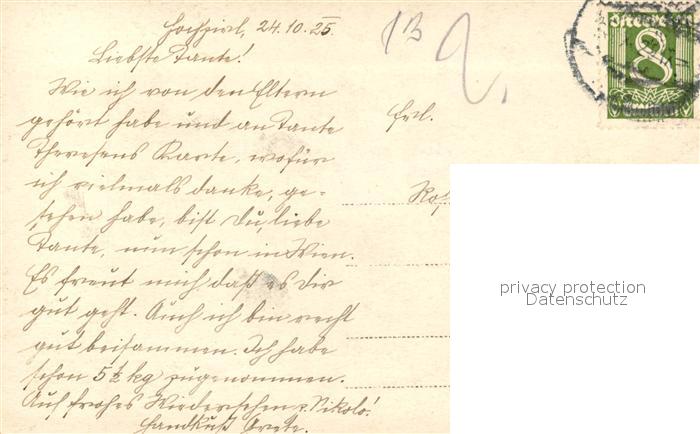 Hochzirl, 24.10.25
Liebste Tante!
Wie ich von den Eltern
gehört habe und an Tante
Theresens Karte, wofür
ich vielmals danke, ge-
sehen habe, bist Du, liebe
Tante, nun schon in Wien.
Es freut mich daß es Dir
gut geht. Auch ich bin recht
gut beisammen. Ich habe
schon 5½ kg zugenommen.
Auf frohes Wiedersehen z. Nikolo!
Handkuß Grete.
13
2.
Frl.
Österreich
8
privacy protection
Datenschutz